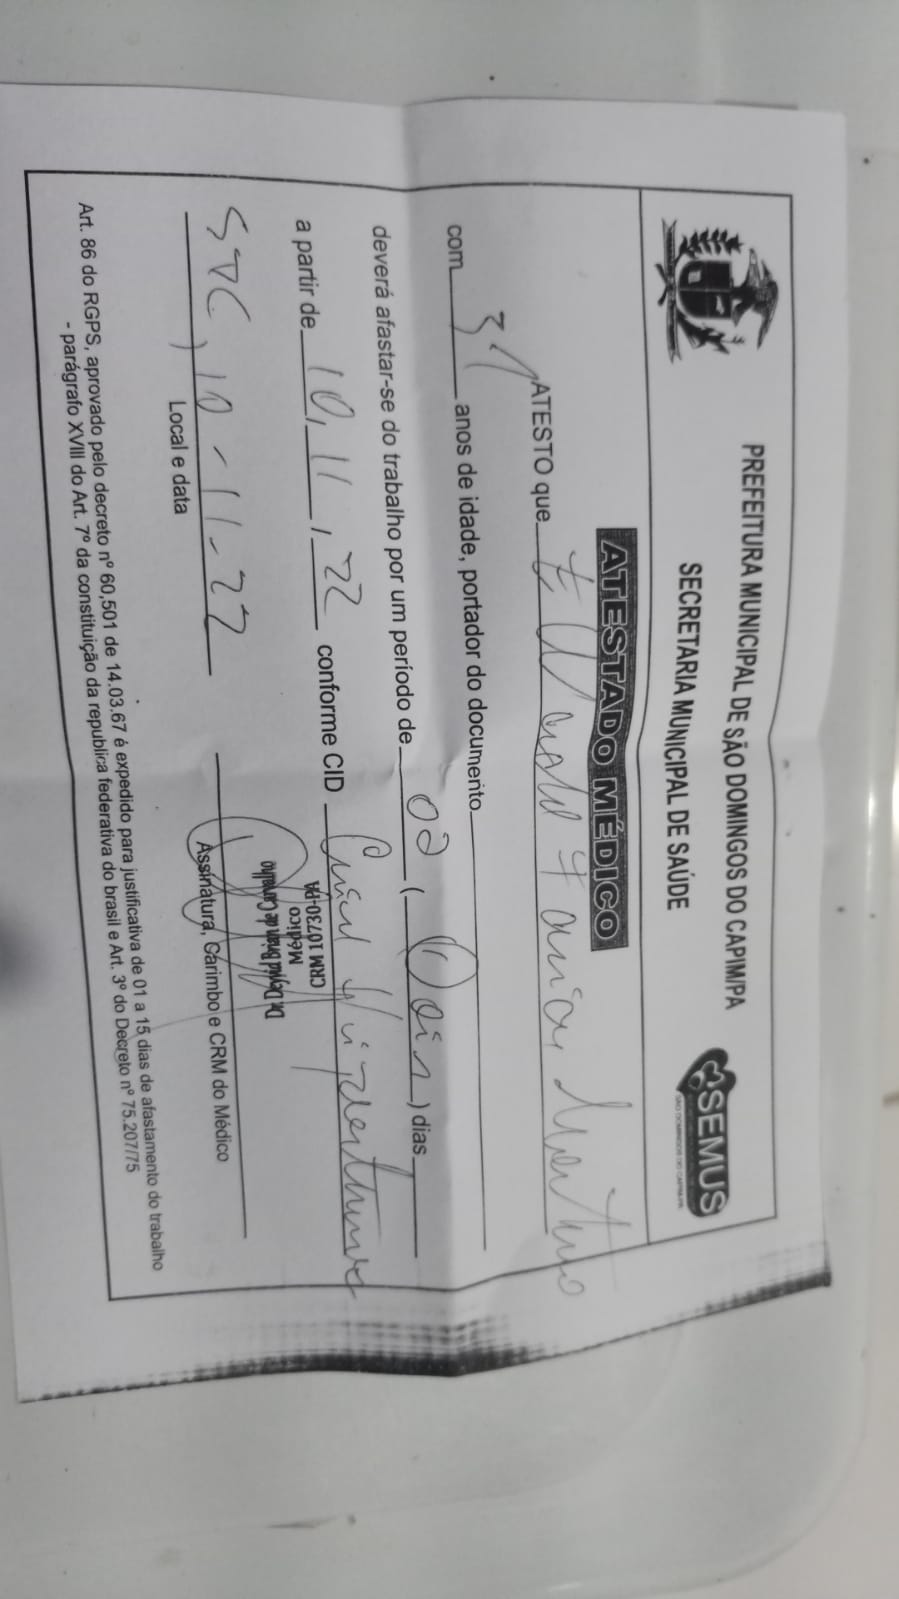 PREFEITURA MUNICIPAL DE SÃO DOMINGOS DO CAPIM/PA
SECRETARIA MUNICIPAL DE SAÚDE
SEMUS
SÃO DOMINGOS DO CAPIM-PA
ATESTADO MÉDICO
ATESTO que
com 31 anos de idade, portador do documento
deverá afastar-se do trabalho por um período de 02 ( Dois ) dias
a partir de 10, 11, 22 conforme CID
CRM 10730-PA
Médico
SDC, 10-11-22
Local e data
Assinatura, Carimbo e CRM do Médico
Art. 86 do RGPS, aprovado pelo decreto nº 60,501 de 14.03.67 é expedido para justificativa de 01 a 15 dias de afastamento do trabalho
- parágrafo XVIII do Art. 7º da constituição da republica federativa do brasil e Art. 3º do Decreto nº 75.207/75